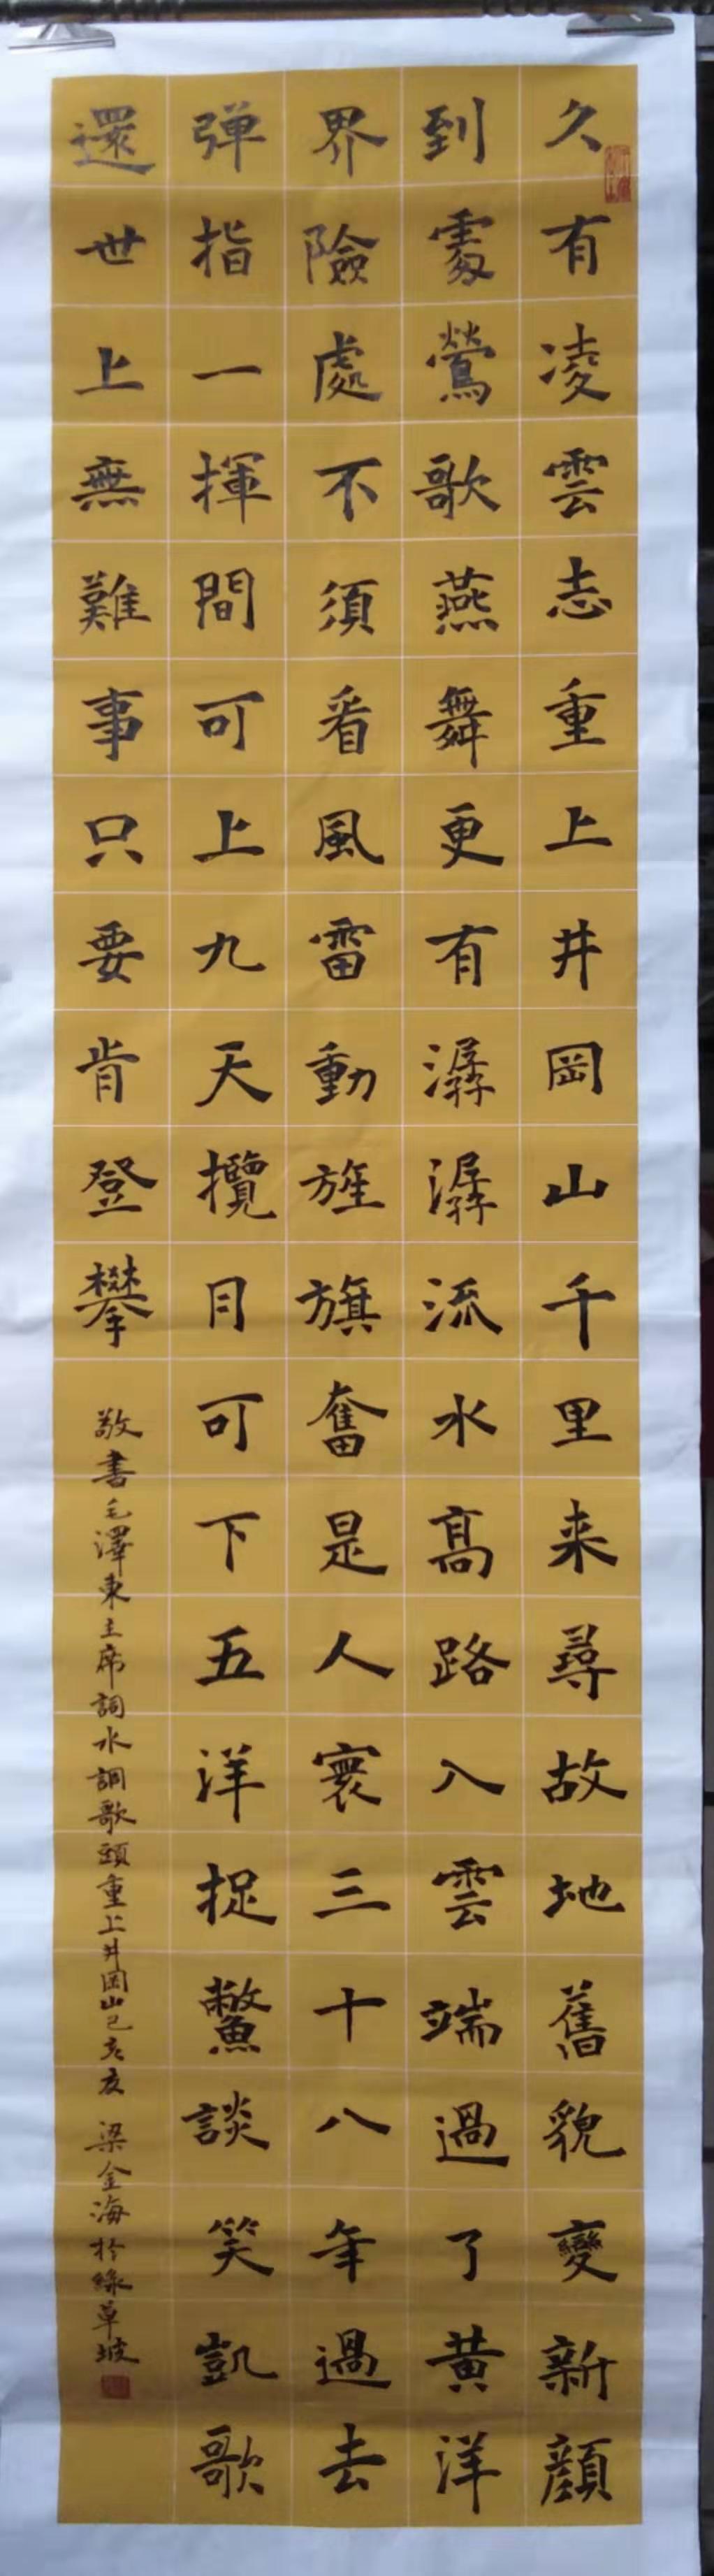 久有凌雲志重上井岡山千里来尋故地舊貌變新顔
到處鶯歌燕舞更有潺潺流水髙路入雲端過了黄洋
界險處不須看風雷動旌旗奮是人寰三十八年過去
弹指一揮間可上九天攬月可下五洋捉鱉談笑凱歌
還世上無難事只要肯登攀
敬書毛澤東主席詞水調歌頭重上井岡山己亥夏 梁金海於緑草坡